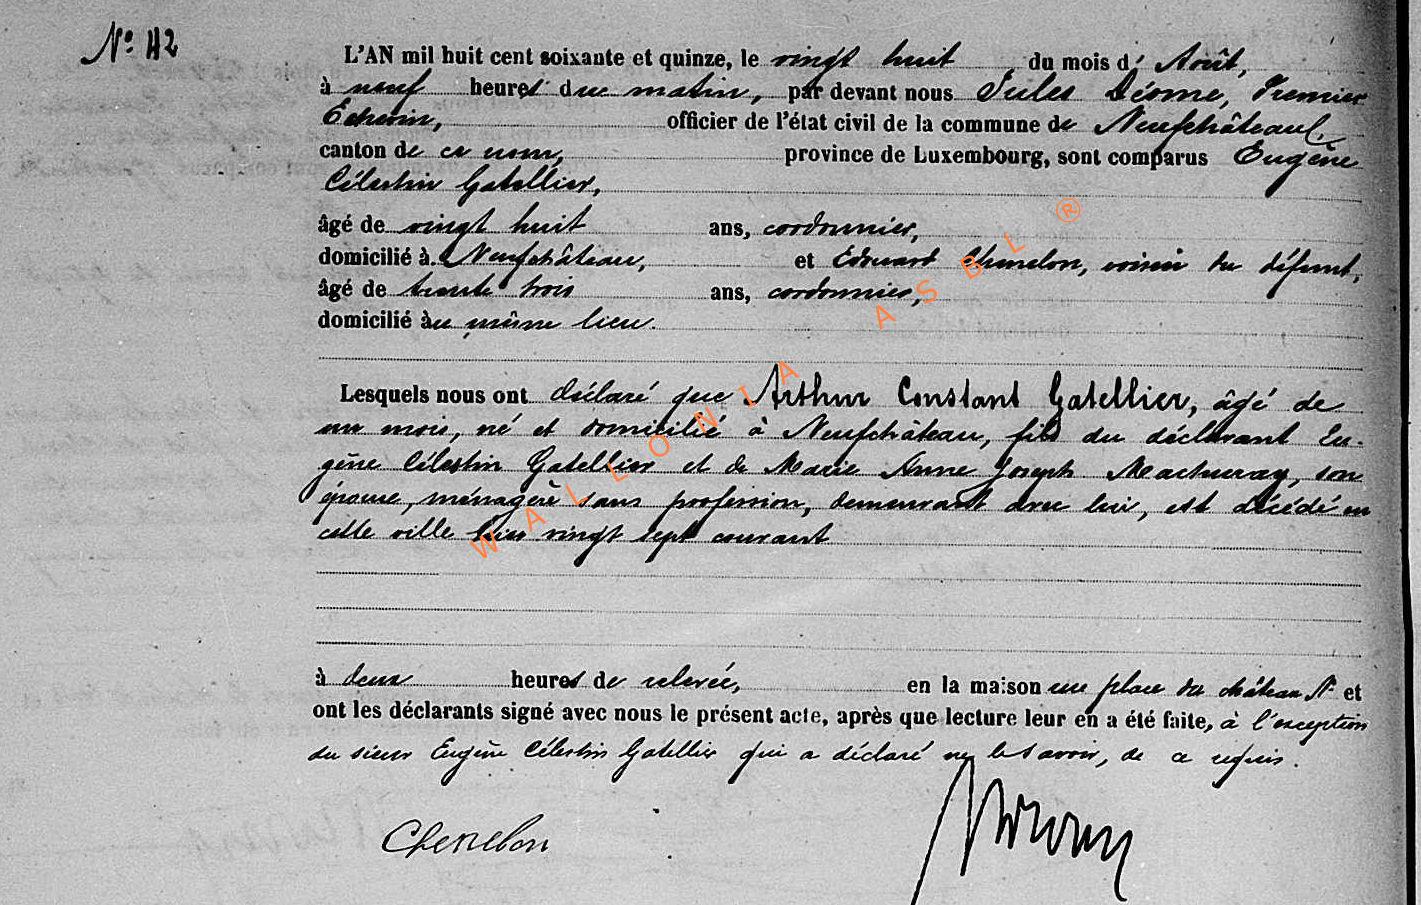 N° 42
L'AN mil huit cent soixante et quinze, le vingt huit du mois d' Août,
à neuf heures du matin, par devant nous Jules Diome, Premier
Echevin, officier de l'état civil de la commune de Neufchâteau,
canton de ce nom, province de Luxembourg, sont comparus Eugène
Célestin Gatellier,
âgé de vingt huit ans, cordonnier,
domicilié à Neufchâteau, et Edouard Chenelon, voisin du défunt,
âgé de trente trois ans, cordonnier,
domicilié au même lieu.
Lesquels nous ont déclaré que Arthur Constant Gatellier, âgé de
un mois, né et domicilié à Neufchâteau, fils du déclarant Eu-
gène Célestin Gatellier et de Marie Anne Joseph son
épouse, ménagère sans profession, demeurant avec lui, est décédé en
cette ville hier vingt sept courant
à deux heures de relevée, en la maison place du château N° et
ont les déclarants signé avec nous le présent acte, après que lecture leur en a été faite, à l'exception
du sieur Eugène Célestin Gatellier qui a déclaré ne le savoir, de ce requis.
Chenelon
WALLONIA ASBL ®